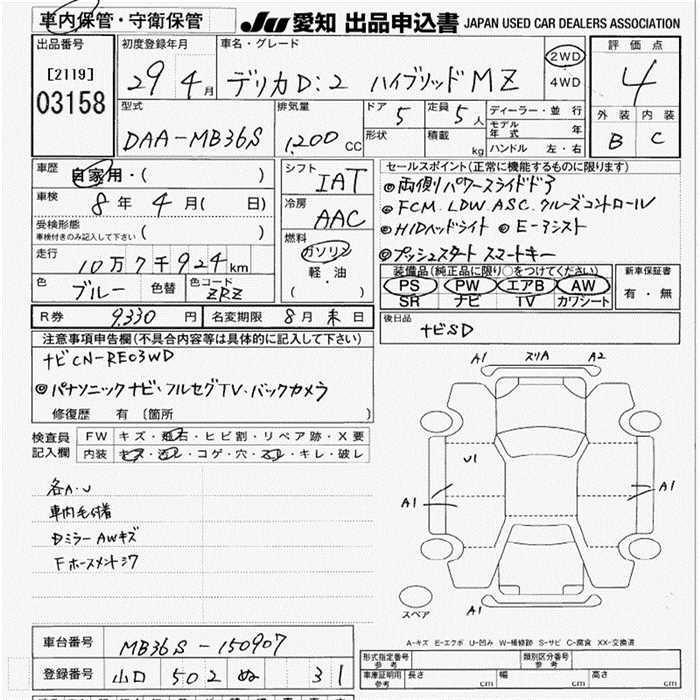 車内保管・守衛保管
JU 愛知 出品申込書 JAPAN USED CAR DEALERS ASSOCIATION
出品番号
[2119]
03158
初度登録年月
29 4月
車名・グレード
デリカD:2 ハイブリッドMZ
2WD
4WD
評価点
4
外装 内装
B C
型式
DAA-MB36S
排気量
1,200 CC
ドア 5
形状
定員 5人
積載 kg
ディーラー・並行
モデル年式 年
ハンドル 左・右
車歴
自家用・( )
車検
8年 4月( 日)
受検形態
車検付きのみ記入して下さい ( )
走行
10万7千924km
色 ブルー 色替 色コード ZRZ
シフト IAT
冷房 AAC
燃料
ガソリン
軽・油
( )
セールスポイント(正常に機能するものに限ります)
◎両側パワースライドドア
◎FCM.LDW.ASC.クルーズコントロール
◎HIDヘッドライト ◎E-アシスト
◎プッシュスタート スマートキー
装備品(純正品に限り○をつけてください)
PS PW エアB AW
SR ナビ TV カワシート
新車保証書
有・無
R券 9,330円 名変期限 8月末日
後日品
ナビSD
注意事項申告欄(不具合内容等は具体的に記入して下さい)
ナビCN-RE03WD
◎パナソニックナビ・フルセグTV・バックカメラ
修復歴 有〔箇所 〕
検査員記入欄
FW キズ・飛石・ヒビ割・リペア跡・X要
内装 キズ・汚レ・コゲ・穴・スレ・キレ・破レ
各A・U
車内毛付着
DミラーAWキズ
A1 スリA A2
U1
A1
A1
A1
スペア
A-キズ E-エクボ U-凹み W-補修跡 S-サビ C-腐食 XX-交換済
車台番号 MB36S-150907
登録番号 山口 502 ぬ 31
形式指定番号 参考
類別区分番号 参考
車庫証明用 参考 長さ cm 幅 cm 高さ cm